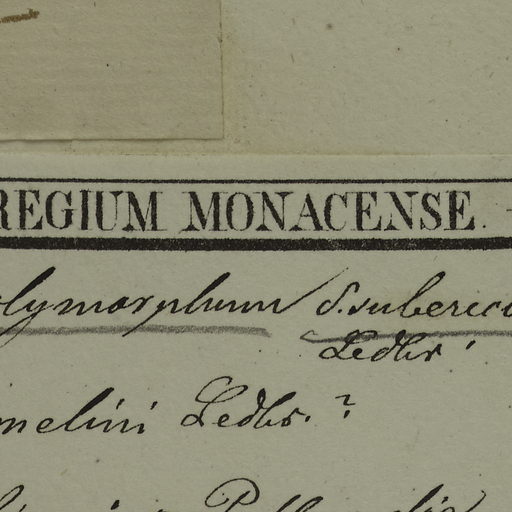 REGIUM MONACENSE.
olymorphum δ. suberecta
Ledbr
melini Ledbr. ?